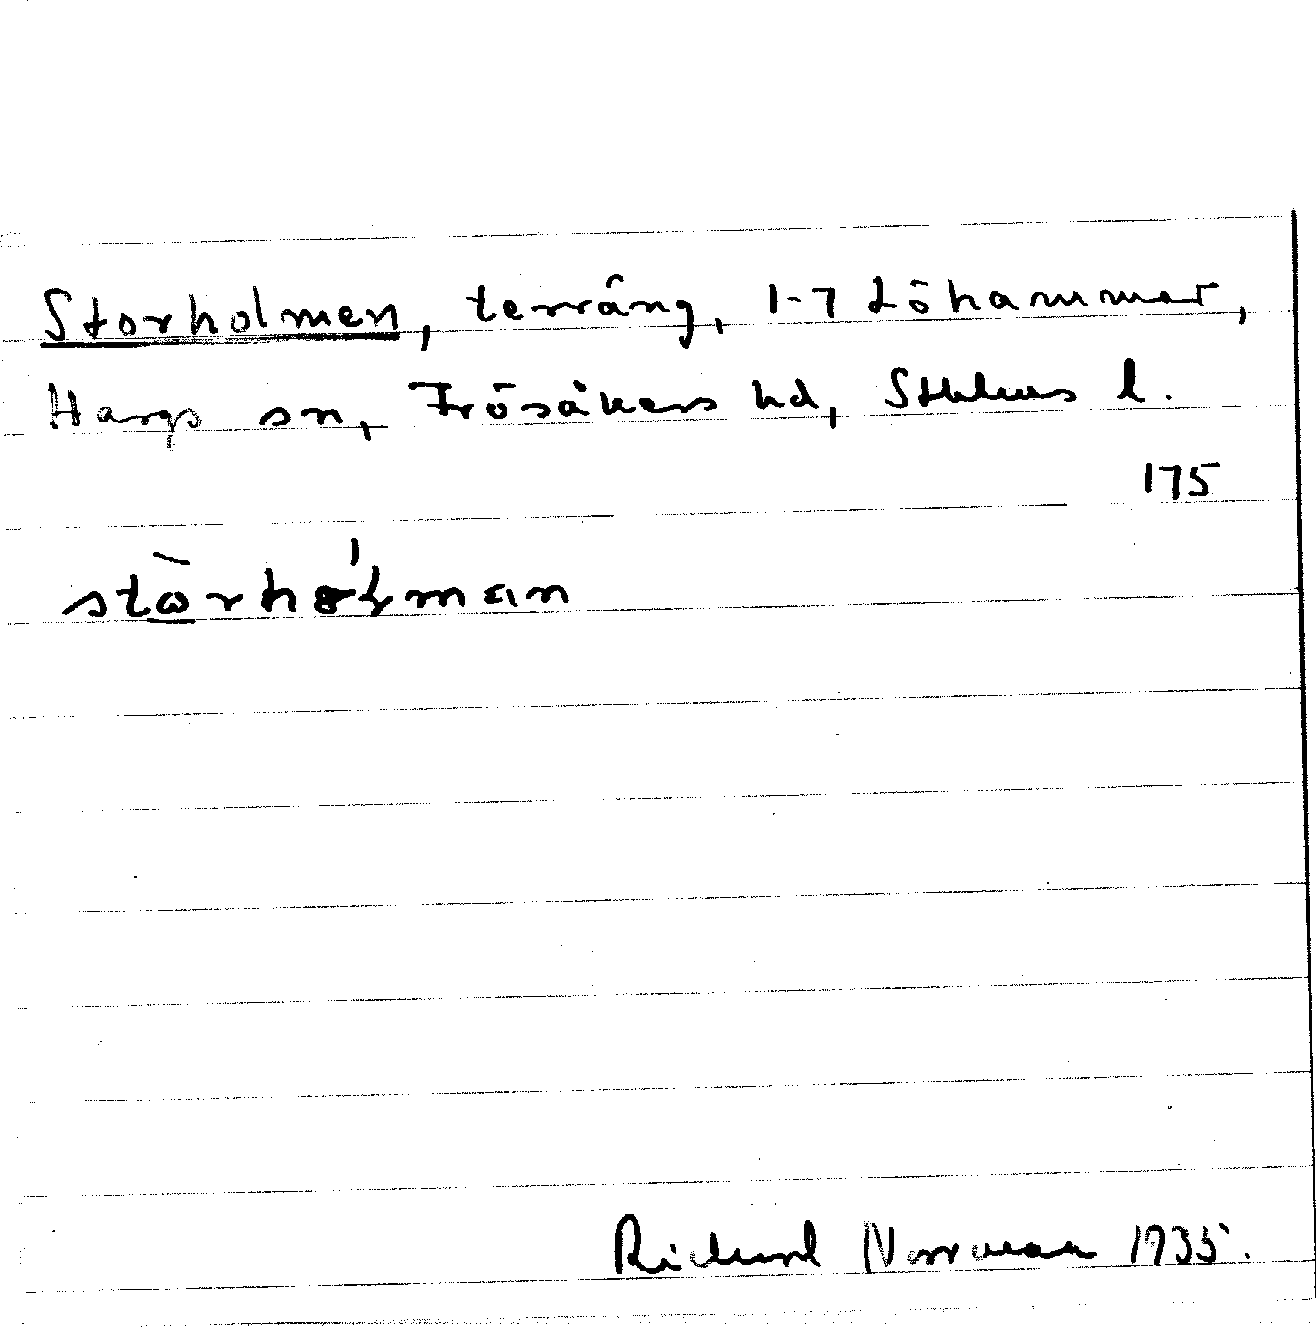 Storholmen, terräng, 1-7 Löhammar,
Hargs sn, Frösåkers hd, Sthlms l.
175
stòrhólman
Richard Norrman 1935.